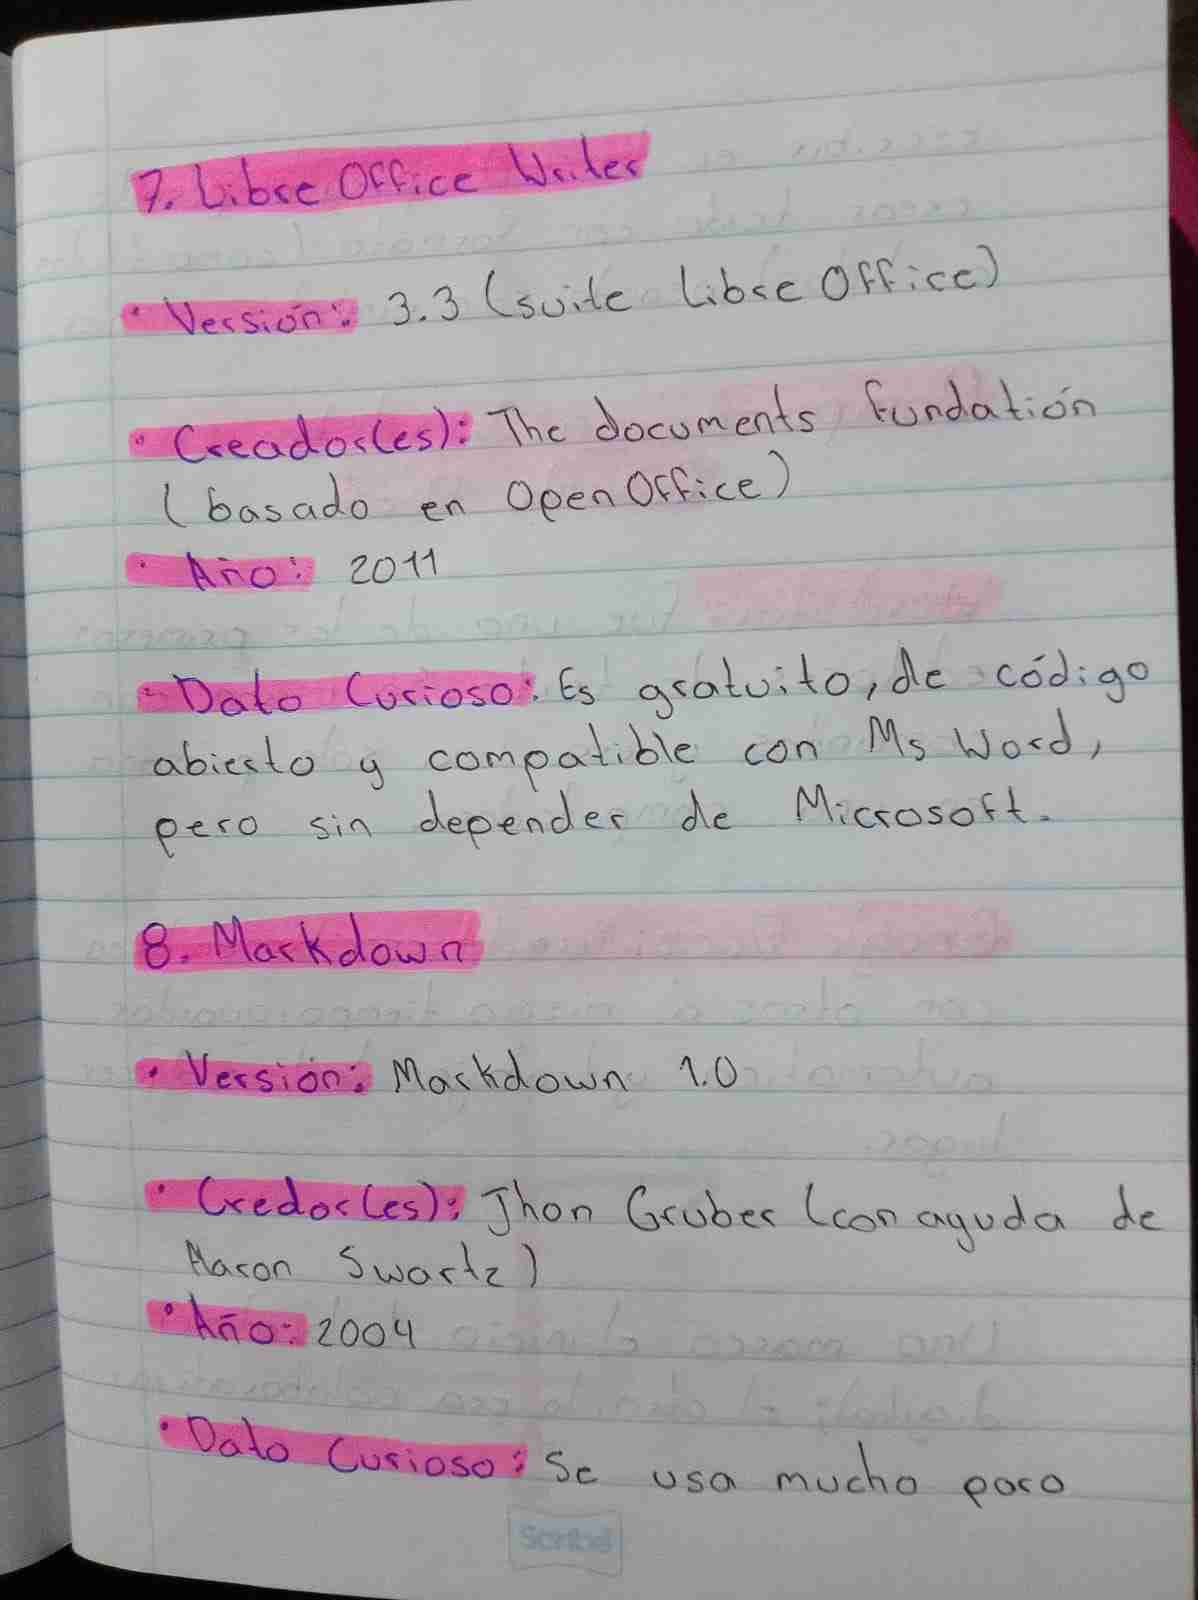 7. Libre Office Writer
· Versión: 3.3 (suite Libre Office)
· Creador(es): The documents fundatión
(basado en OpenOffice)
· Año: 2011
· Dato Curioso: Es gratuito, de código
abierto y compatible con Ms Word,
pero sin depender de Microsoft.
8. Markdown
· Versión: Markdown 1.0
· Credor(es): Jhon Gruber (con ayuda de
Aaron Swartz)
· Año: 2004
· Dato Curioso: Se usa mucho para
Scribe